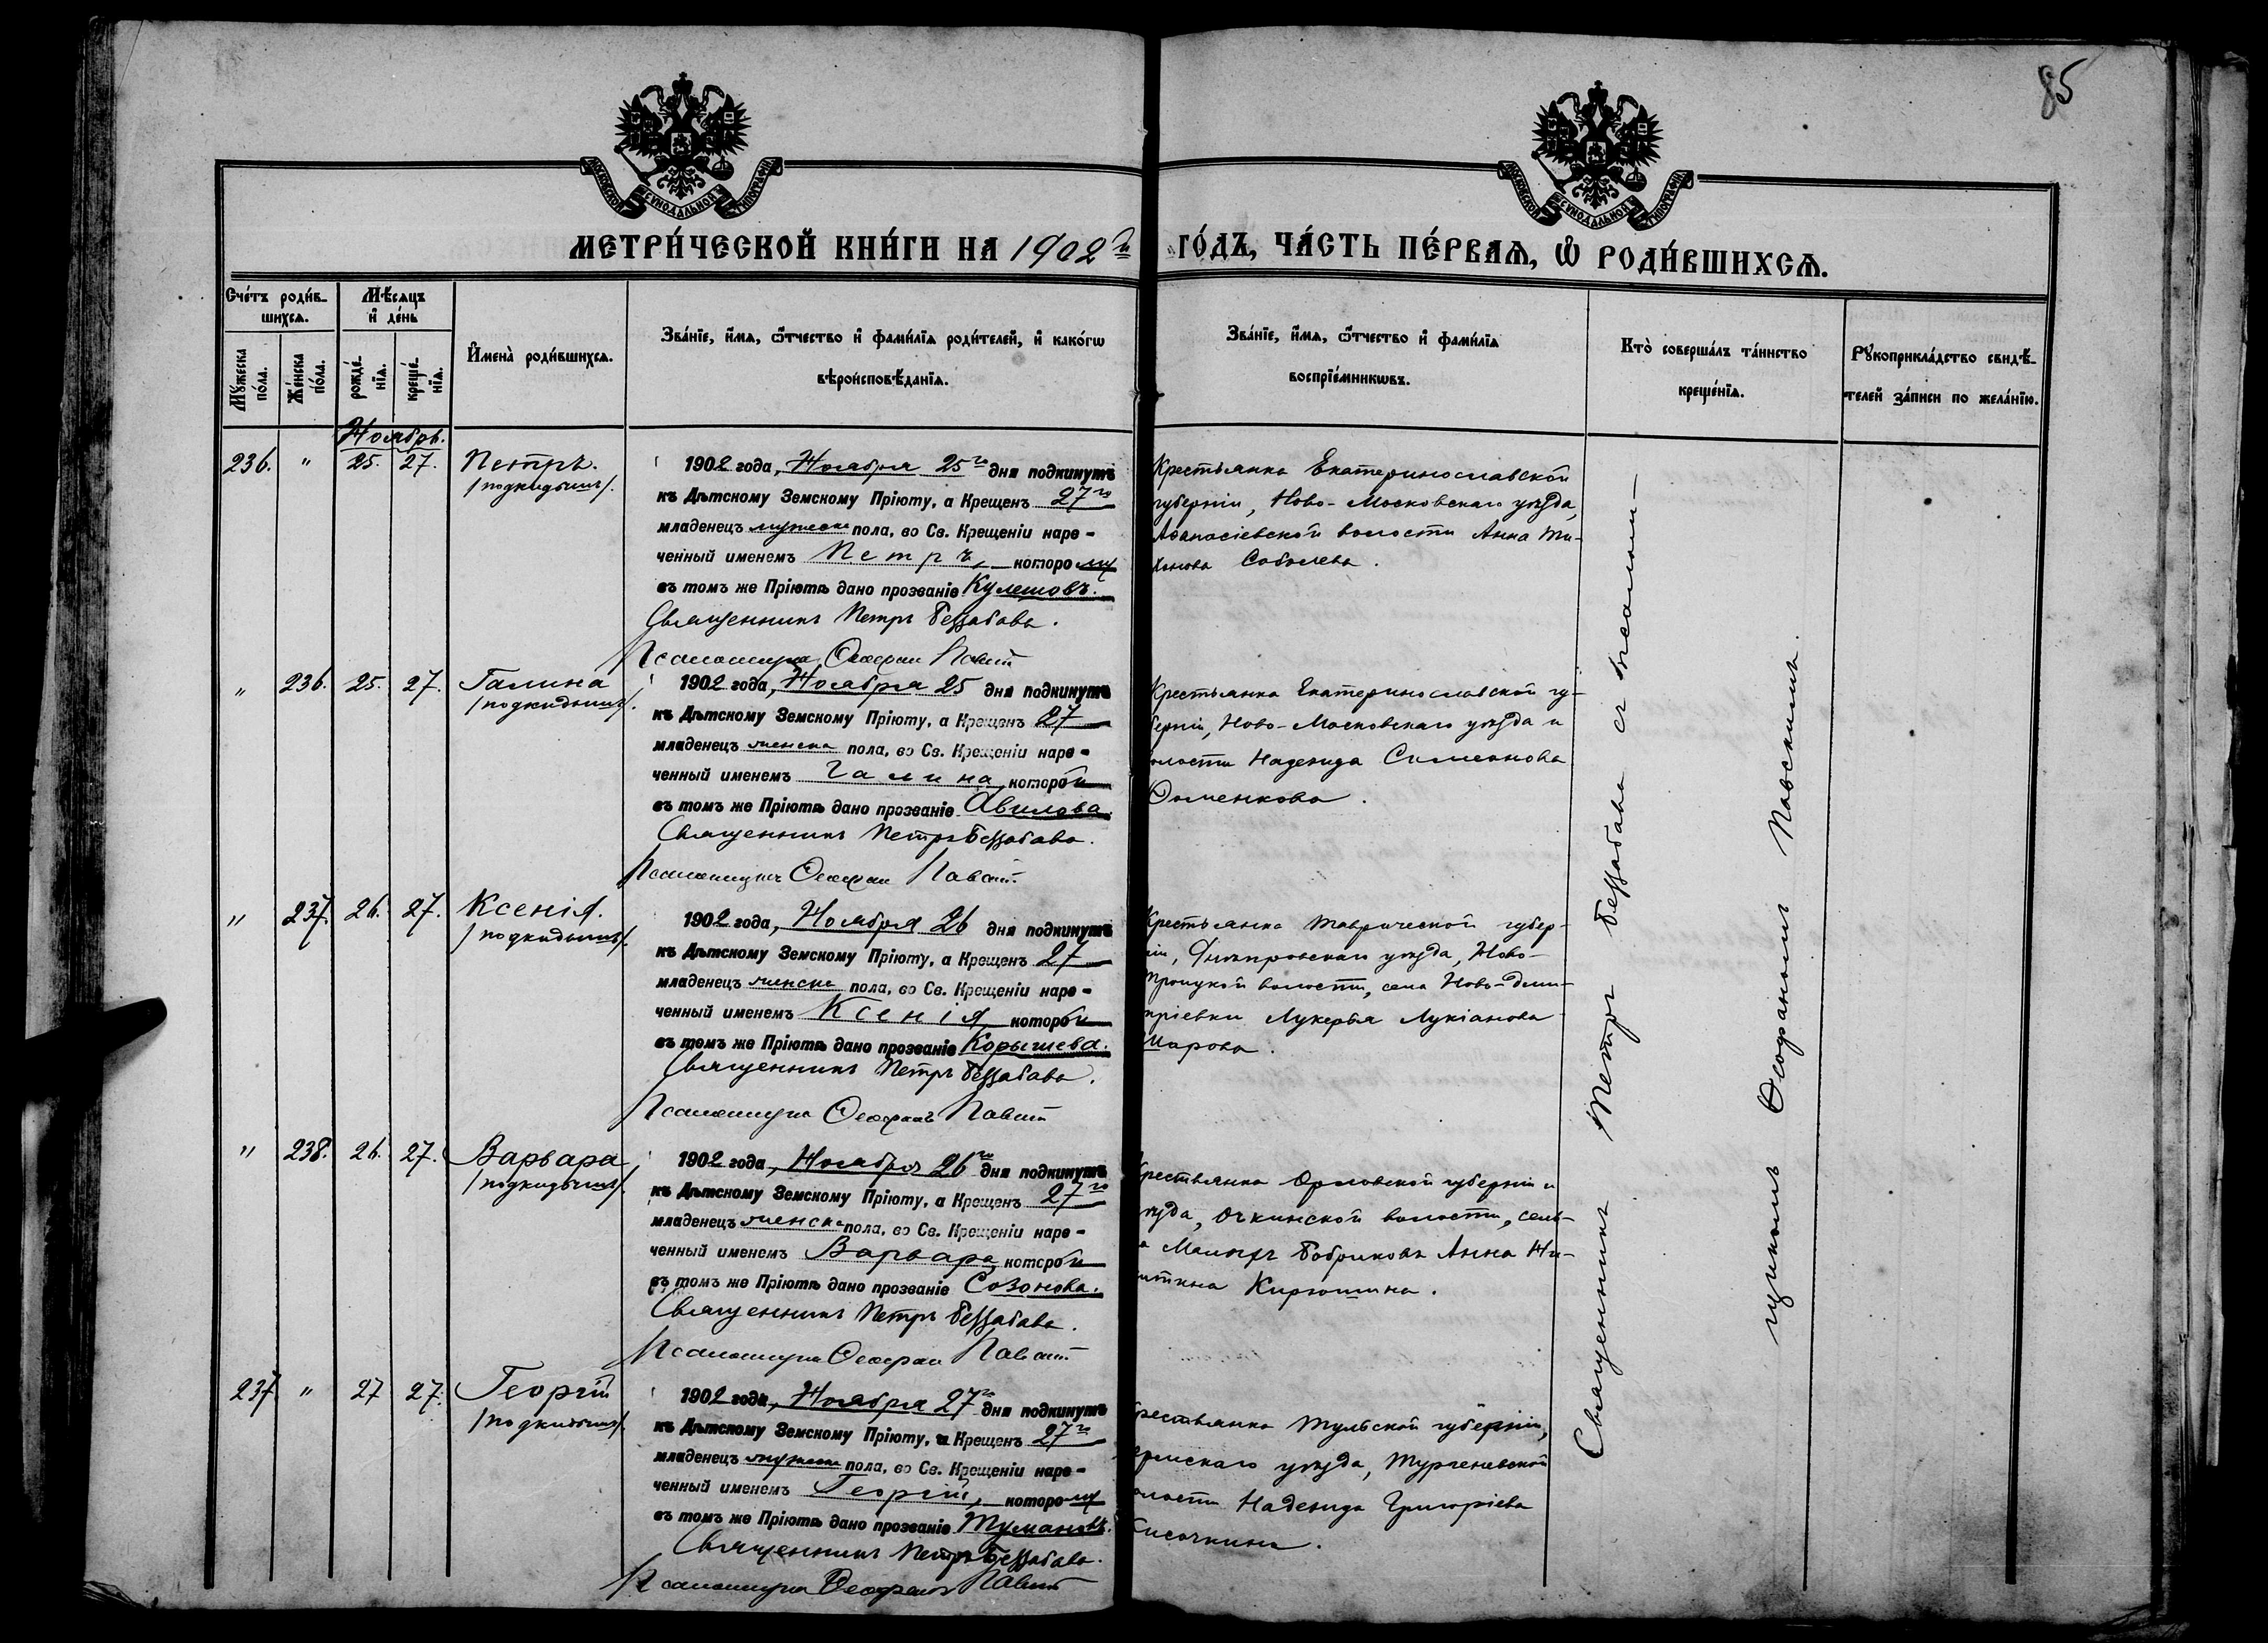 85
МОСКОВСКОЙ СУНОДАЛЬНОЙ ТИПОГРАФІИ
МОСКОВСКОЙ СУНОДАЛЬНОЙ ТИПОГРАФІИ
МЕТРИ́ЧЕСКОЙ КНИ́ГИ НА 1902й ГО́ДЪ, ЧА́СТЬ ПЕ́РВАѦ, Ѡ҆ РОДИ́ВШИХСѦ.
Сче́тъ роди́в-
шихсѧ.
Мѣ́сѧцъ
и҆ де́нь
Мꙋжеска
по́ла.
Же́нска
по́ла.
рожде́-
нїѧ.
креще́-
нїѧ.
И҆мена̀ роди́вшихсѧ.
Зва́нїе, и҆́мѧ, ѻ҆́тчество и҆ фами́лїѧ роди́телей, и҆ како́гѡ
вѣроисповѣ́данїѧ.
Зва́нїе, и҆́мѧ, ѻ҆́тчество и҆ фами́лїѧ
воспрїе́мникѡвъ.
Кто̀ соверша́лъ та́инство
креще́нїѧ.
Рꙋкоприкла́дство свидѣ́-
телей за́писи по жела́нїю.
Ноябрь.
236. " 25. 27. Петръ.
/подкидышъ/.
1902 года, Ноября 25го дня подкинутъ
къ Дѣтскому Земскому Пріюту, а Крещенъ 27го
младенецъ мужеска пола, во Св. Крещеніи наре-
ченный именемъ Петръ, которому
въ томъ же Пріютѣ дано прозваніе Кулешовъ.
Священникъ Петръ Беззабава.
Псаломщикъ Ѳеофан
Крестьянка Екатеринославской
губерніи, Ново-Московскаго уѣзда,
Аѳанасіевской волости Анна Ти-
хонова Соболева.
" 236. 25. 27. Галина
/подкидышъ/.
1902 года, Ноября 25 дня подкинутъ
къ Дѣтскому Земскому Пріюту, а Крещенъ 27
младенецъ женска пола, во Св. Крещеніи наре-
ченный именемъ Галина, которой
въ томъ же Пріютѣ дано прозваніе Авилова.
Священникъ Петръ Беззабава.
Псаломщикъ Ѳеофан
Крестьянка Екатеринославской гу-
берніи, Ново-Московскаго уѣзда и
волости Надежда Симеонова
Ѳоменкова.
" 237. 26. 27. Ксенія.
/подкидышъ/.
1902 года, Ноября 26 дня подкинутъ
къ Дѣтскому Земскому Пріюту, а Крещенъ 27
младенецъ женска пола, во Св. Крещеніи наре-
ченный именемъ Ксенія, которой
въ томъ же Пріютѣ дано прозваніе Корышева.
Священникъ Петръ Беззабава.
Псаломщикъ Ѳеофанъ
Крестьянка Таврической губер-
ніи, Днѣпровскаго уѣзда, Ново-
Троицкой волости, села Ново-Дми-
тріевки Лукерья Лукіанова
Шарова.
" 238. 26. 27. Варвара
/подкидышъ/.
1902 года, Ноября 26го дня подкинутъ
къ Дѣтскому Земскому Пріюту, а Крещенъ 27го
младенецъ женска пола, во Св. Крещеніи наре-
ченный именемъ Варвара, которой
въ томъ же Пріютѣ дано прозваніе Созонова.
Священникъ Петръ Беззабава.
Псаломщикъ Ѳеофан
Крестьянка Орловской губерніи и
уѣзда, Очкинской волости, сель-
Бобриковъ Анна Ни-
китина Кирюшина.
237. " 27 27. Георгій
/подкидышъ/.
1902 года, Ноября 27го дня подкинутъ
къ Дѣтскому Земскому Пріюту, а Крещенъ 27го
младенецъ мужеска пола, во Св. Крещеніи наре-
ченный именемъ Георгій, которому
въ томъ же Пріютѣ дано прозваніе Тумановъ.
Священникъ Петръ Беззабава.
Псаломщикъ Ѳеофанъ
Крестьянка Тульской губерніи,
уѣзда, Тургеневской
волости Надежда Григоріева
Священникъ Петръ Беззабава съ псалом-
щикомъ Ѳеофаномъ Павскимъ.